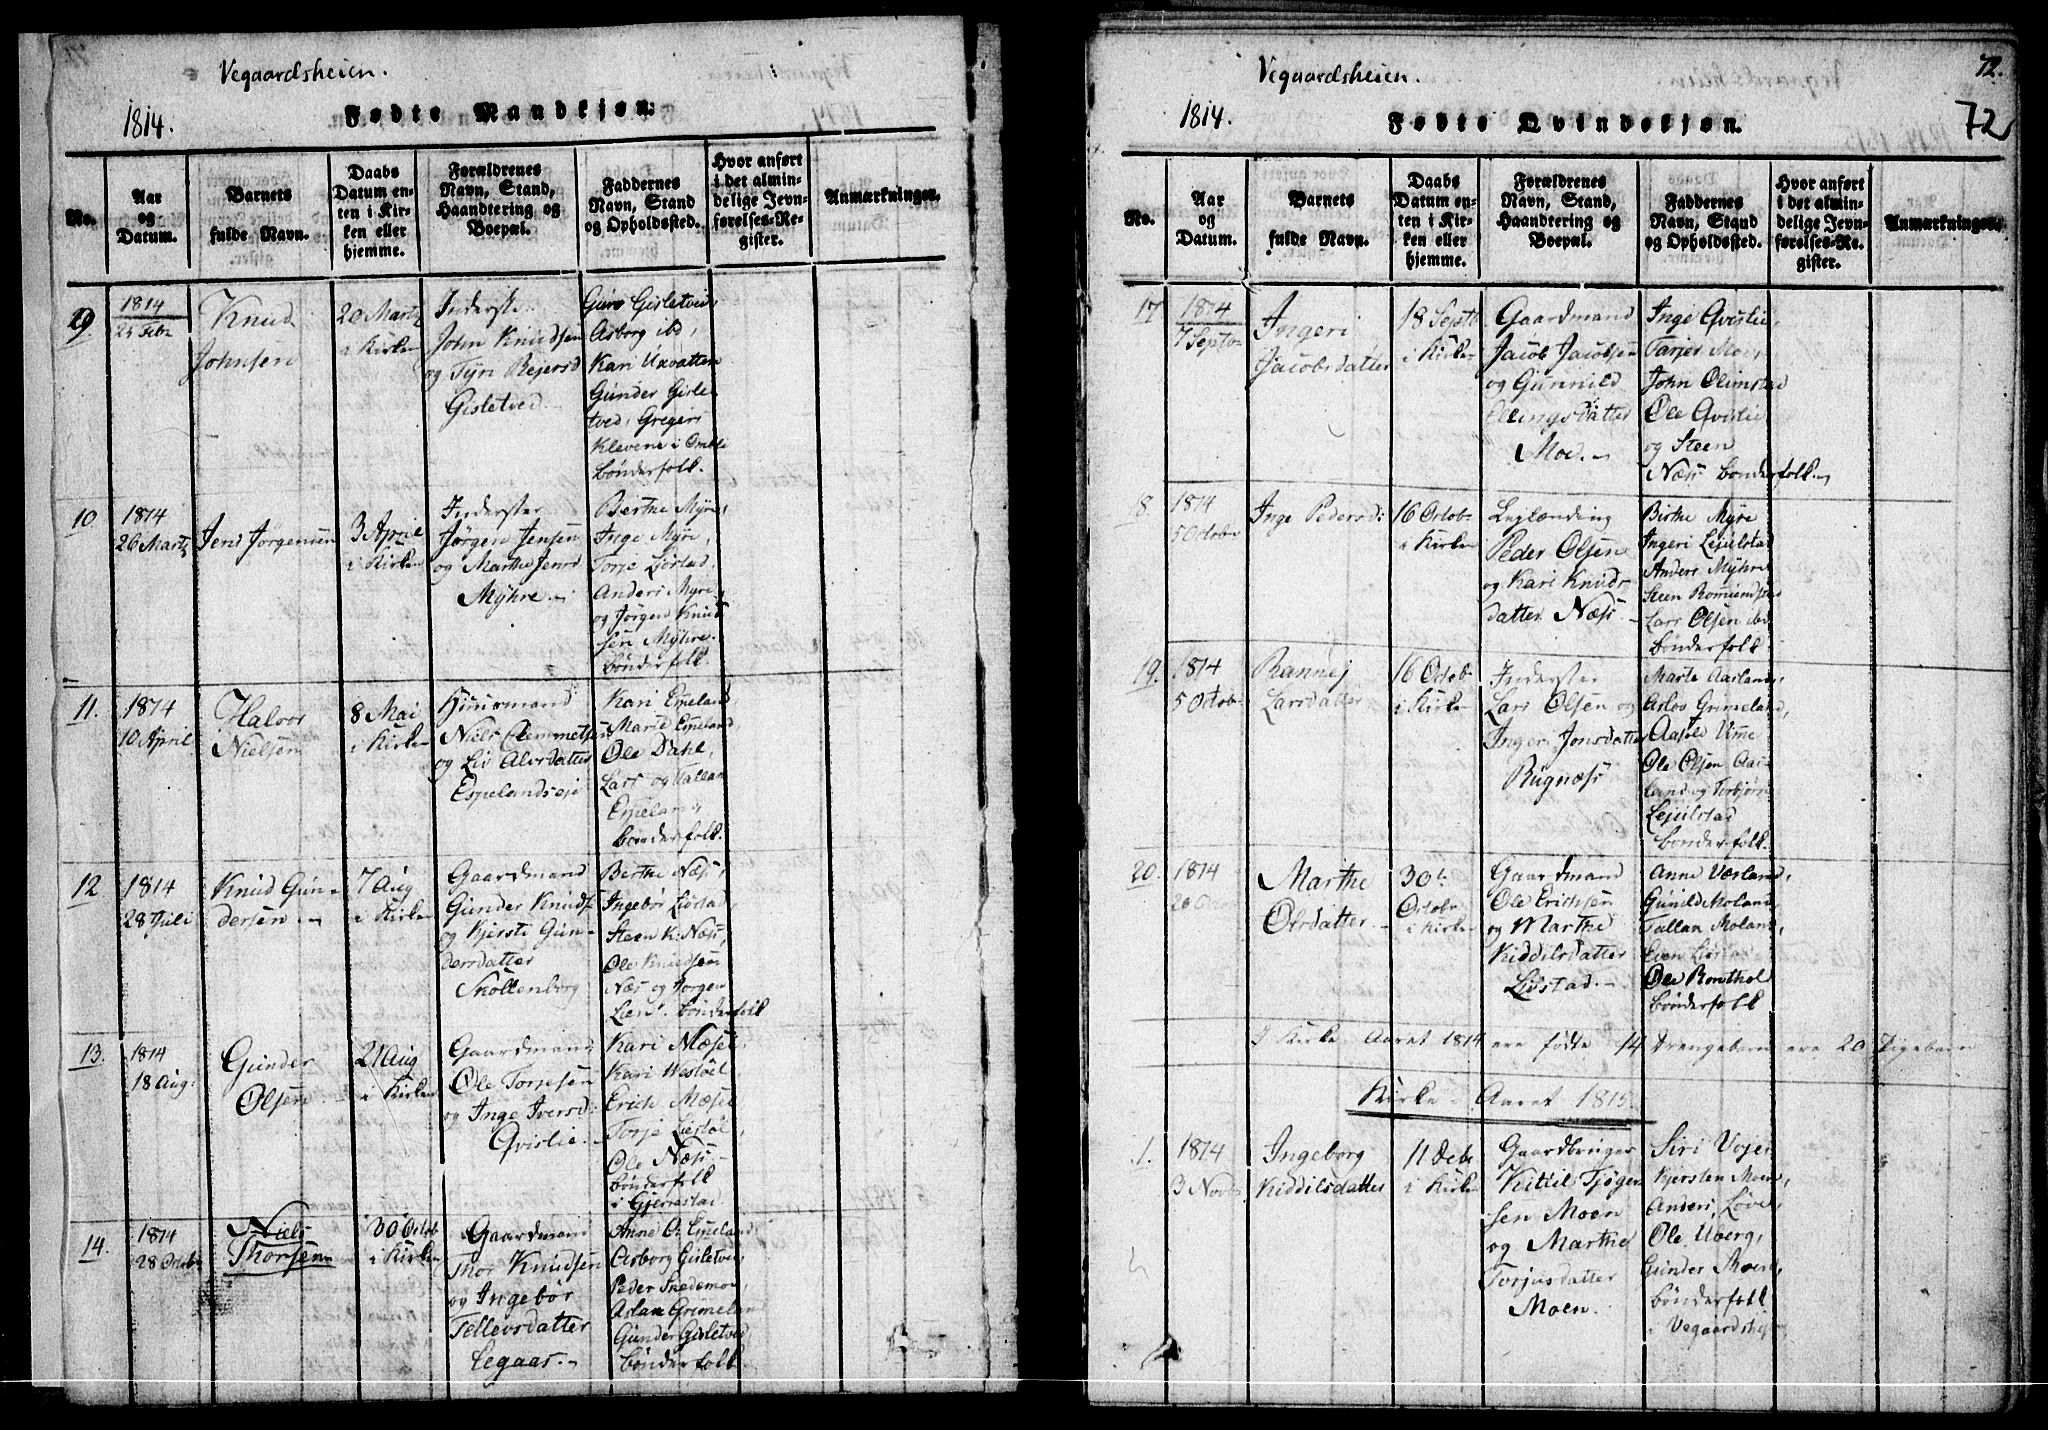 Vegaardsheien.
1814.
Fødte Mandkjøn.
No.
Aar
og
Datum.
Barnets
fulde Navn.
Daabs
Datum en-
ten i Kir-
ken eller
hjemme.
Forældrenes
Navn, Stand,
Haandtering og
Boepæl.
Faddernes
Navn, Stand
og Opholdssted.
Hvor anført
i det almin-
delige Jevn-
førelses-Re-
gister.
Anmærkninger.
9.
1814
Febr
Knud
Johnsen
20 Martz
i Kirken
Inderste
John Knudsen
og Tÿri Rejersd
Gisletved.
Guro Gisletved,
Asborg ibd,
Kari Uavatten
Gunder Gisle-
tved, Gregers
Klevene i
bønderfolk.
10
1814
26 Martz
Jens Jørgensen
3 April
i Kirken
Inderster
Jørgen Jensen
og Marthe Jensd
Mÿhre.
Berthe Mÿre,
Inge Mÿre,
Torje Liøstad,
Anders Mÿre
og Jørgen Knud-
sen Mÿhre.
bønderfolk.
11.
1814
10 April
Halvor
Nielsen
8 Mai
i Kirken
Huusmand
Niels Clemmetsen
og Liv Alvsdatter
Espelandseje
Kari Espeland
Marte Espeland,
Ole Dahl,
Lars og Tallan
Espeland
bønderfolk.
12
1814
28 Juli
Knud Gun-
dersen
7 Aug
i Kirken
Gaardmand
Gunder Knuds
og Kjersti Gun-
dersdatter
Skollenborg
Berthe Næs,
Ingebør Liøstad,
Steen K. Næs,
Ole Knudsen
Næs og Jorgen
Lien. bønderfolk
13.
1814
18 Aug:
Gunder
Olsen
21 Aug
i Kirken
Gaardmand
Ole Torjesen
og Inge Iversd:
Qvislie
Kari Mæsel,
Kari Westøl,
Erich Mæsel
Torje Liestøl,
Ole Næs
bønderfolk
i Gjerrestad
14.
1814
28 Octobr
Niels
Thorsen
30 Octob
i Kirken
Gaardmand
Thor Knudsen
og Ingebør
Tellevsdatter
Legaar.
Anne O. Espeland
Asborg Gisletved,
Peder Snedemoe
Aslan Grimeland
Gunder Gisletved
bønderfolk.
Vegaardsheien.
72.
1814.
Fødte Qvindekjøn.
72
No.
Aar
og
Datum.
Barnets
fulde Navn.
Daabs
Datum en-
ten i Kir-
ken eller
hjemme.
Forældrenes
Navn, Stand,
Haandtering og
Boepæl.
Faddernes
Navn, Stand
og Opholdssted.
Hvor anført
i det almin-
delige Jevn-
førelses-Re-
gister.
Anmærkninger.
17
1814
7 Septb
Ingeri
Jacobsdatter
18 Septb
i Kirken
Gaardmand
Jacob Jacobsen
og Gunnild
Ellingsdatter
Moe.
Inge Qvislie,
Tarjer Moe,
John Olimstad
Ole Qvislie
og Steen
Næs bønderfolk.
8
1814
5 Octobr
Inge Pedersd:
16 Octobr
i Kirken
Leglænding
Peder Olsen
og Kari Knuds-
datter Næs
Birthe Mÿre
Ingeri Lejulstad
Anders Mÿhre
Steen Romundstad
Lars Olsen ibd
bønderfolk.
19.
1814
5 Octobr
Rannej
Larsdatter
16 Octobr
i Kirken
Inderster
Lars Olsen og
Inger Jonsdatter
Rugnæs
Marte Aasland,
Aslov Grimeland,
Aasold Ume
Ole Olsen Aas-
land og Torbjørn
Lejulstad
bønderfolk.
20.
1814
Marthe
Olsdatter
30te
Octobr
i Kirken
Gaardmand
Ole Erichsen
og Marthe
Kiddilsdatter
Liøstad.
Anne Værland,
Gunild Moland,
Tallan Moland,
Even Liøstad
Ole Romthol
bønderfolk
I Kirke Aaret 1814 ere fødte 14 Drengebørn ere 20 Pigebørn
Kirke-Aaret 1815.
1.
1814
3 Novbr
Ingeborg
Kiddilsdatter
11 Decbr
i Kirken
Gaardbruger
Kittil Tjøger-
sen Moen
og Marthe
Torjusdatter
Moen.
Siri Voje,
Kjersten Moen,
Anders Løve,
Ole Uberg,
Gunder Moen,
bønderfolk
i Vegaardshei